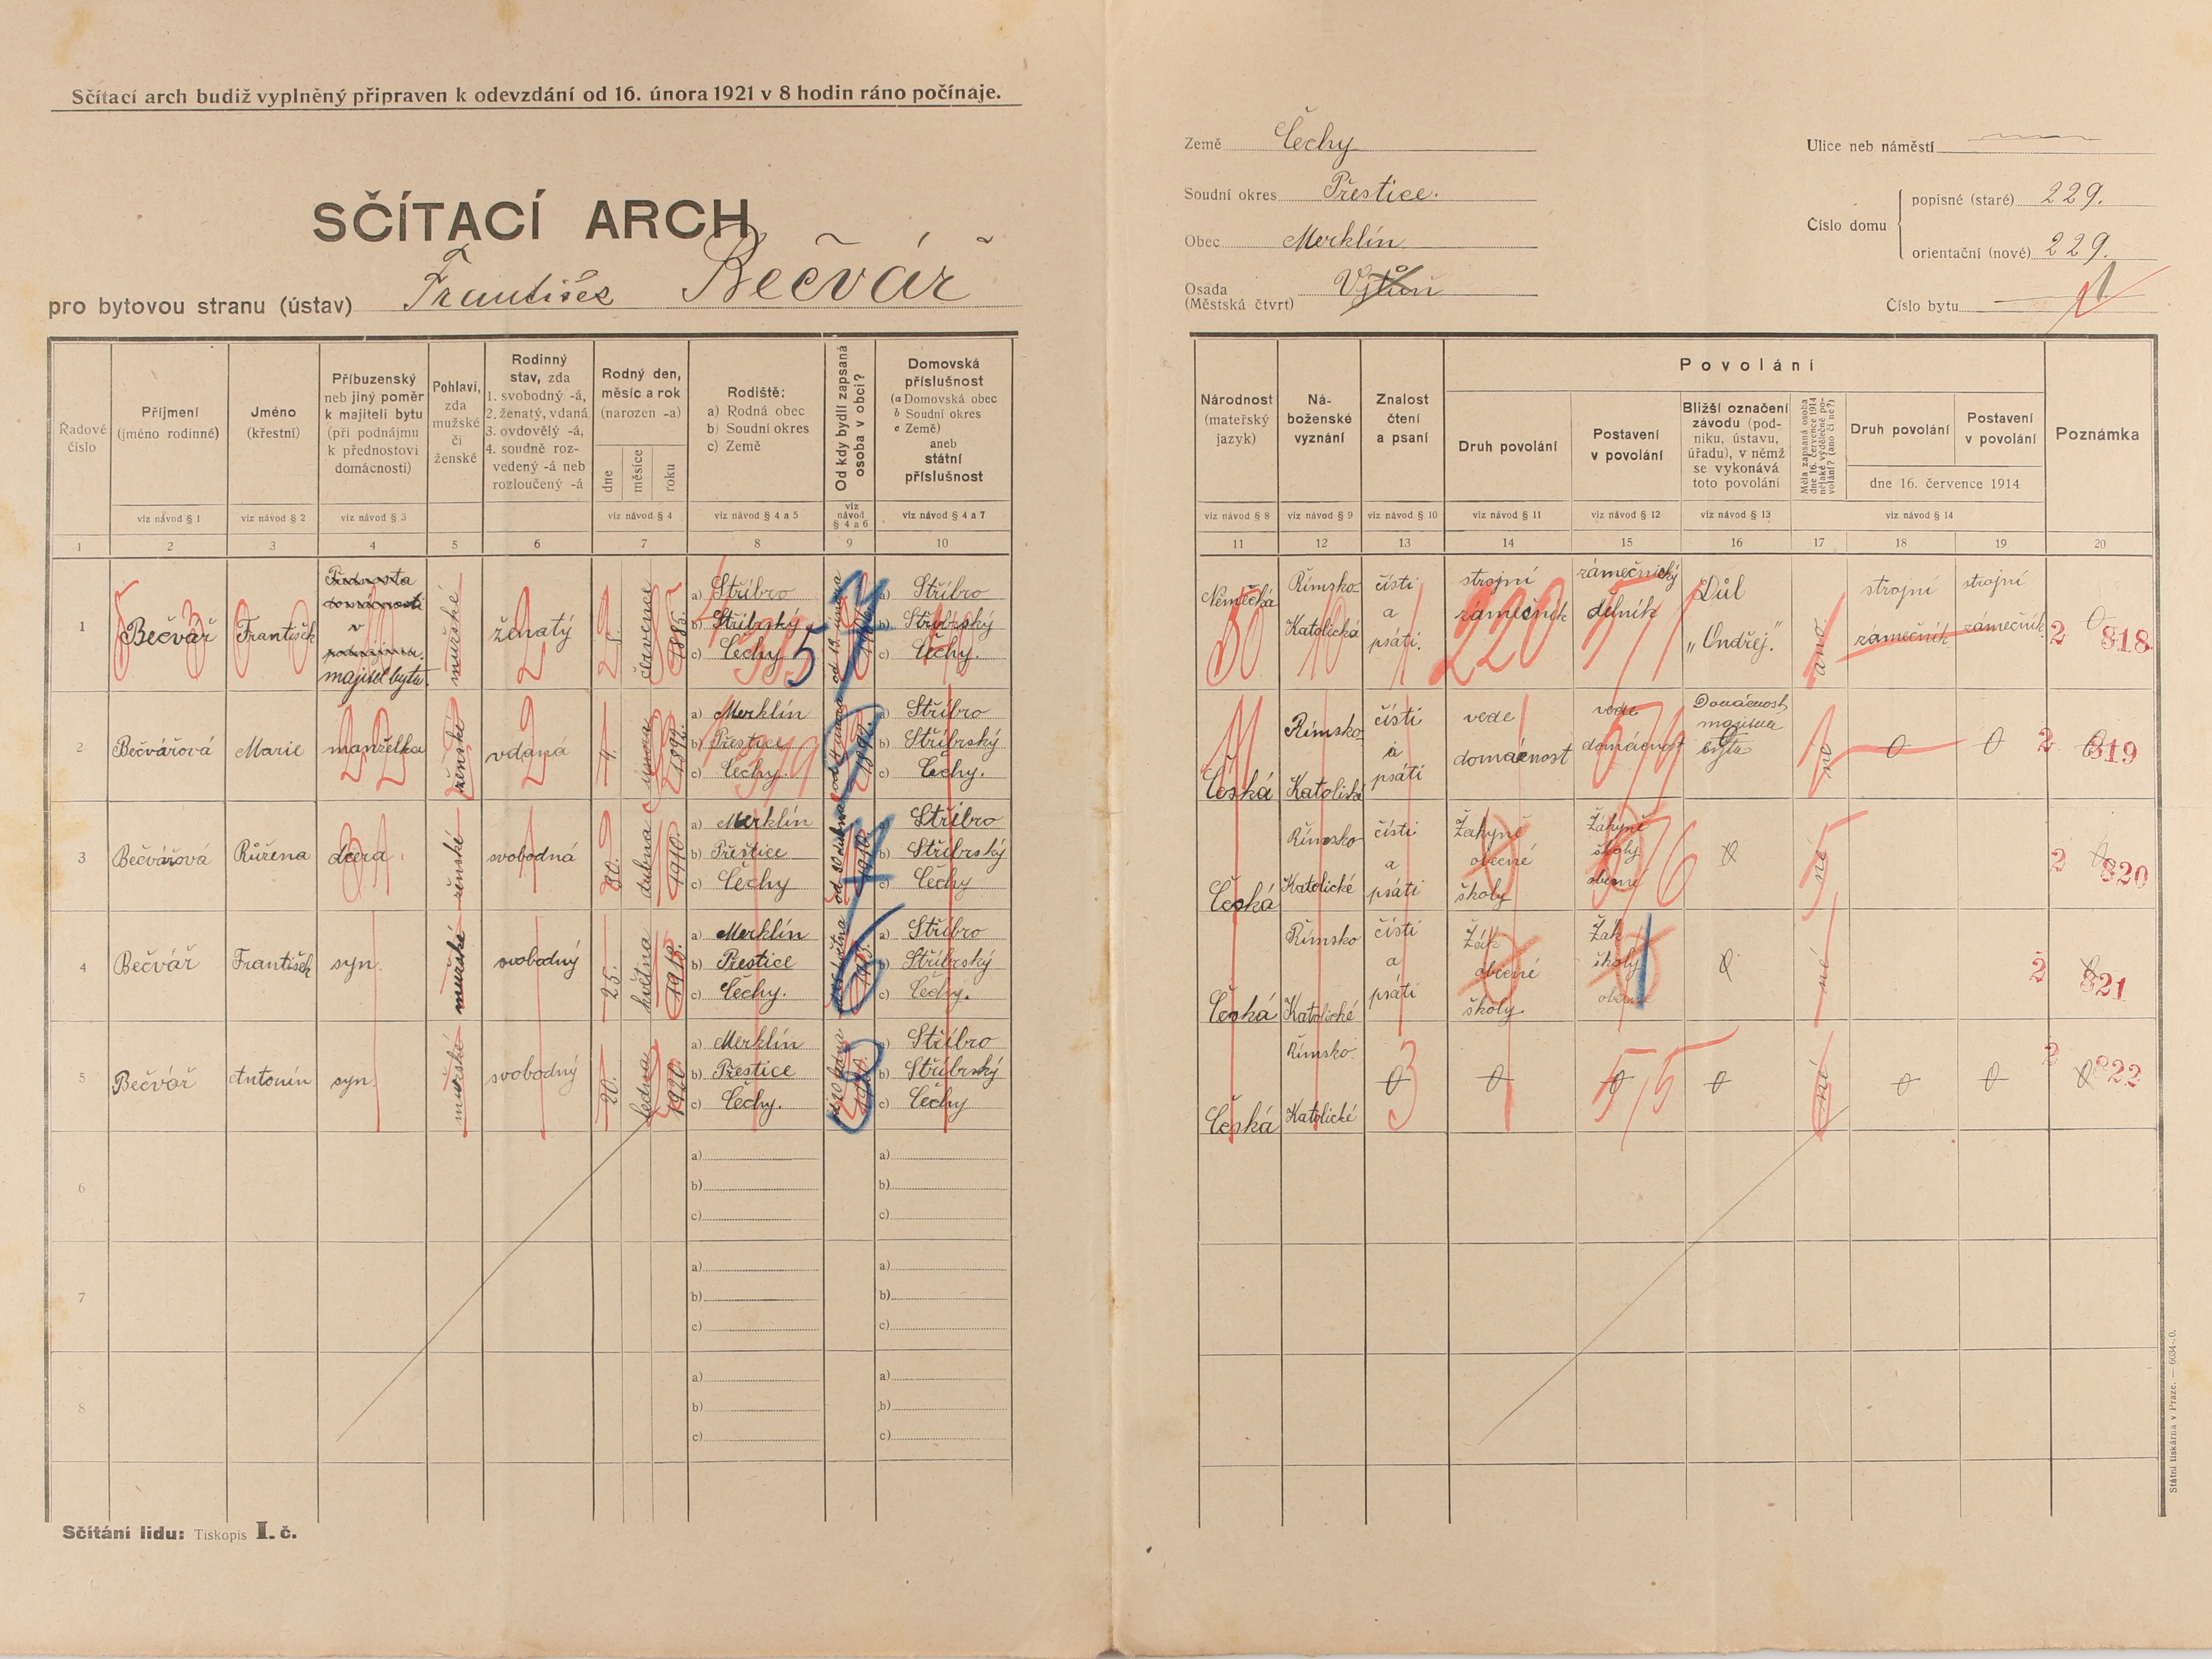 Sčítací arch budiž vyplněný připraven k odevzdání od 16. února 1921 v 8 hodin ráno počínaje.
SČÍTACÍ ARCH
pro bytovou stranu (ústav) František Bečvář
Země Čechy
Soudní okres Přestice.
Obec Merklín
Osada
(Městská čtvrt)
Ulice neb náměstí
Číslo domu
popisné (staré) 229.
orientační (nové) 229.
Číslo bytu 1
Řadové číslo
Příjmení (jméno rodinné)
Jméno (křestní)
Příbuzenský neb jiný poměr k majiteli bytu (při podnájmu k přednostovi domácnosti)
Pohlaví, zda mužské či ženské
Rodinný stav, zda 1. svobodný -á, 2. ženatý, vdaná, 3. ovdovělý -á, 4. soudně rozvedený -á neb rozloučený -á
Rodný den, měsíc a rok (narozen -a)
dne měsíce roku
Rodiště: a) Rodná obec b) Soudní okres c) Země
Od kdy bydlí zapsaná osoba v obci?
Domovská příslušnost (a Domovská obec b Soudní okres c Země) aneb státní příslušnost
viz návod § 1 viz návod § 2 viz návod § 3 viz návod § 4 viz návod § 4 a 5 viz návod § 4 a 6 viz návod § 4 a 7
1 2 3 4 5 6 7 8 9 10
Národnost (mateřský jazyk)
Náboženské vyznání
Znalost čtení a psaní
Povolání
Druh povolání
Postavení v povolání
Bližší označení závodu (podniku, ústavu, úřadu), v němž se vykonává toto povolání
Měla zapsaná osoba dne 16. července 1914 nějaké výdělečné povolání? (ano či ne?)
Druh povolání
Postavení v povolání
dne 16. července 1914
Poznámka
viz návod § 8 viz návod § 9 viz návod § 10 viz návod § 11 viz návod § 12 viz návod § 13 viz návod § 14
11 12 13 14 15 16 17 18 19 20
1 Bečvář František majitel bytu. mužské ženatý 25. července 1885.
a) Stříbro
b) Stříbrský
c) Čechy
a) Stříbro
b) Stříbrský
c) Čechy.
Německá Římsko Katolická čísti a psáti. strojní zámečník zámečnický dělník Důl „Ondřej." ano. strojní zámečník strojní zámečník 2 0 818
2 Bečvářová Marie manželka ženské vdaná 4. února 1892.
a) Merklín
b) Přestice
c) Čechy.
a) Stříbro
b) Stříbrský
c) Čechy.
Česká Římsko Katolická čísti a psáti vede domácnost vede domácnost Domácnost majitele bytu ne 0 0 2 819
3 Bečvářová Růžena dcera ženské svobodná 30. dubna 1910.
a) Merklín
b) Přestice
c) Čechy
a) Stříbro
b) Stříbrský
c) Čechy
Česká Římsko Katolické čísti a psáti Žákyně obecné školy Žákyně školy obecné 0 né 2 820
4 Bečvář František syn. mužské svobodný 25. května 1913.
a) Merklín
b) Přestice
c) Čechy.
a) Stříbro
b) Stříbrský
c) Čechy.
Česká Římsko Katolické čísti a psáti Žák obecné školy Žák školy obecné 0 né 2 821
5 Bečvář Antonín syn mužské svobodný 20. ledna 1920.
a) Merklín
b) Přestice
c) Čechy.
a) Stříbro
b) Stříbrský
c) Čechy
Česká Římsko Katolické 0 0 0 0 né 0 0 2 822
6
a)
b)
c)
a)
b)
c)
7
a)
b)
c)
a)
b)
c)
8
a)
b)
c)
a)
b)
c)
Sčítání lidu: Tiskopis I. č.
Státní tiskárna v Praze. — 6034-.0.